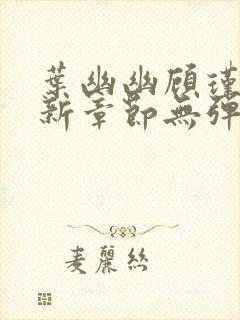 葉幽幽顧瑾
新章節無彈
麦麗絲